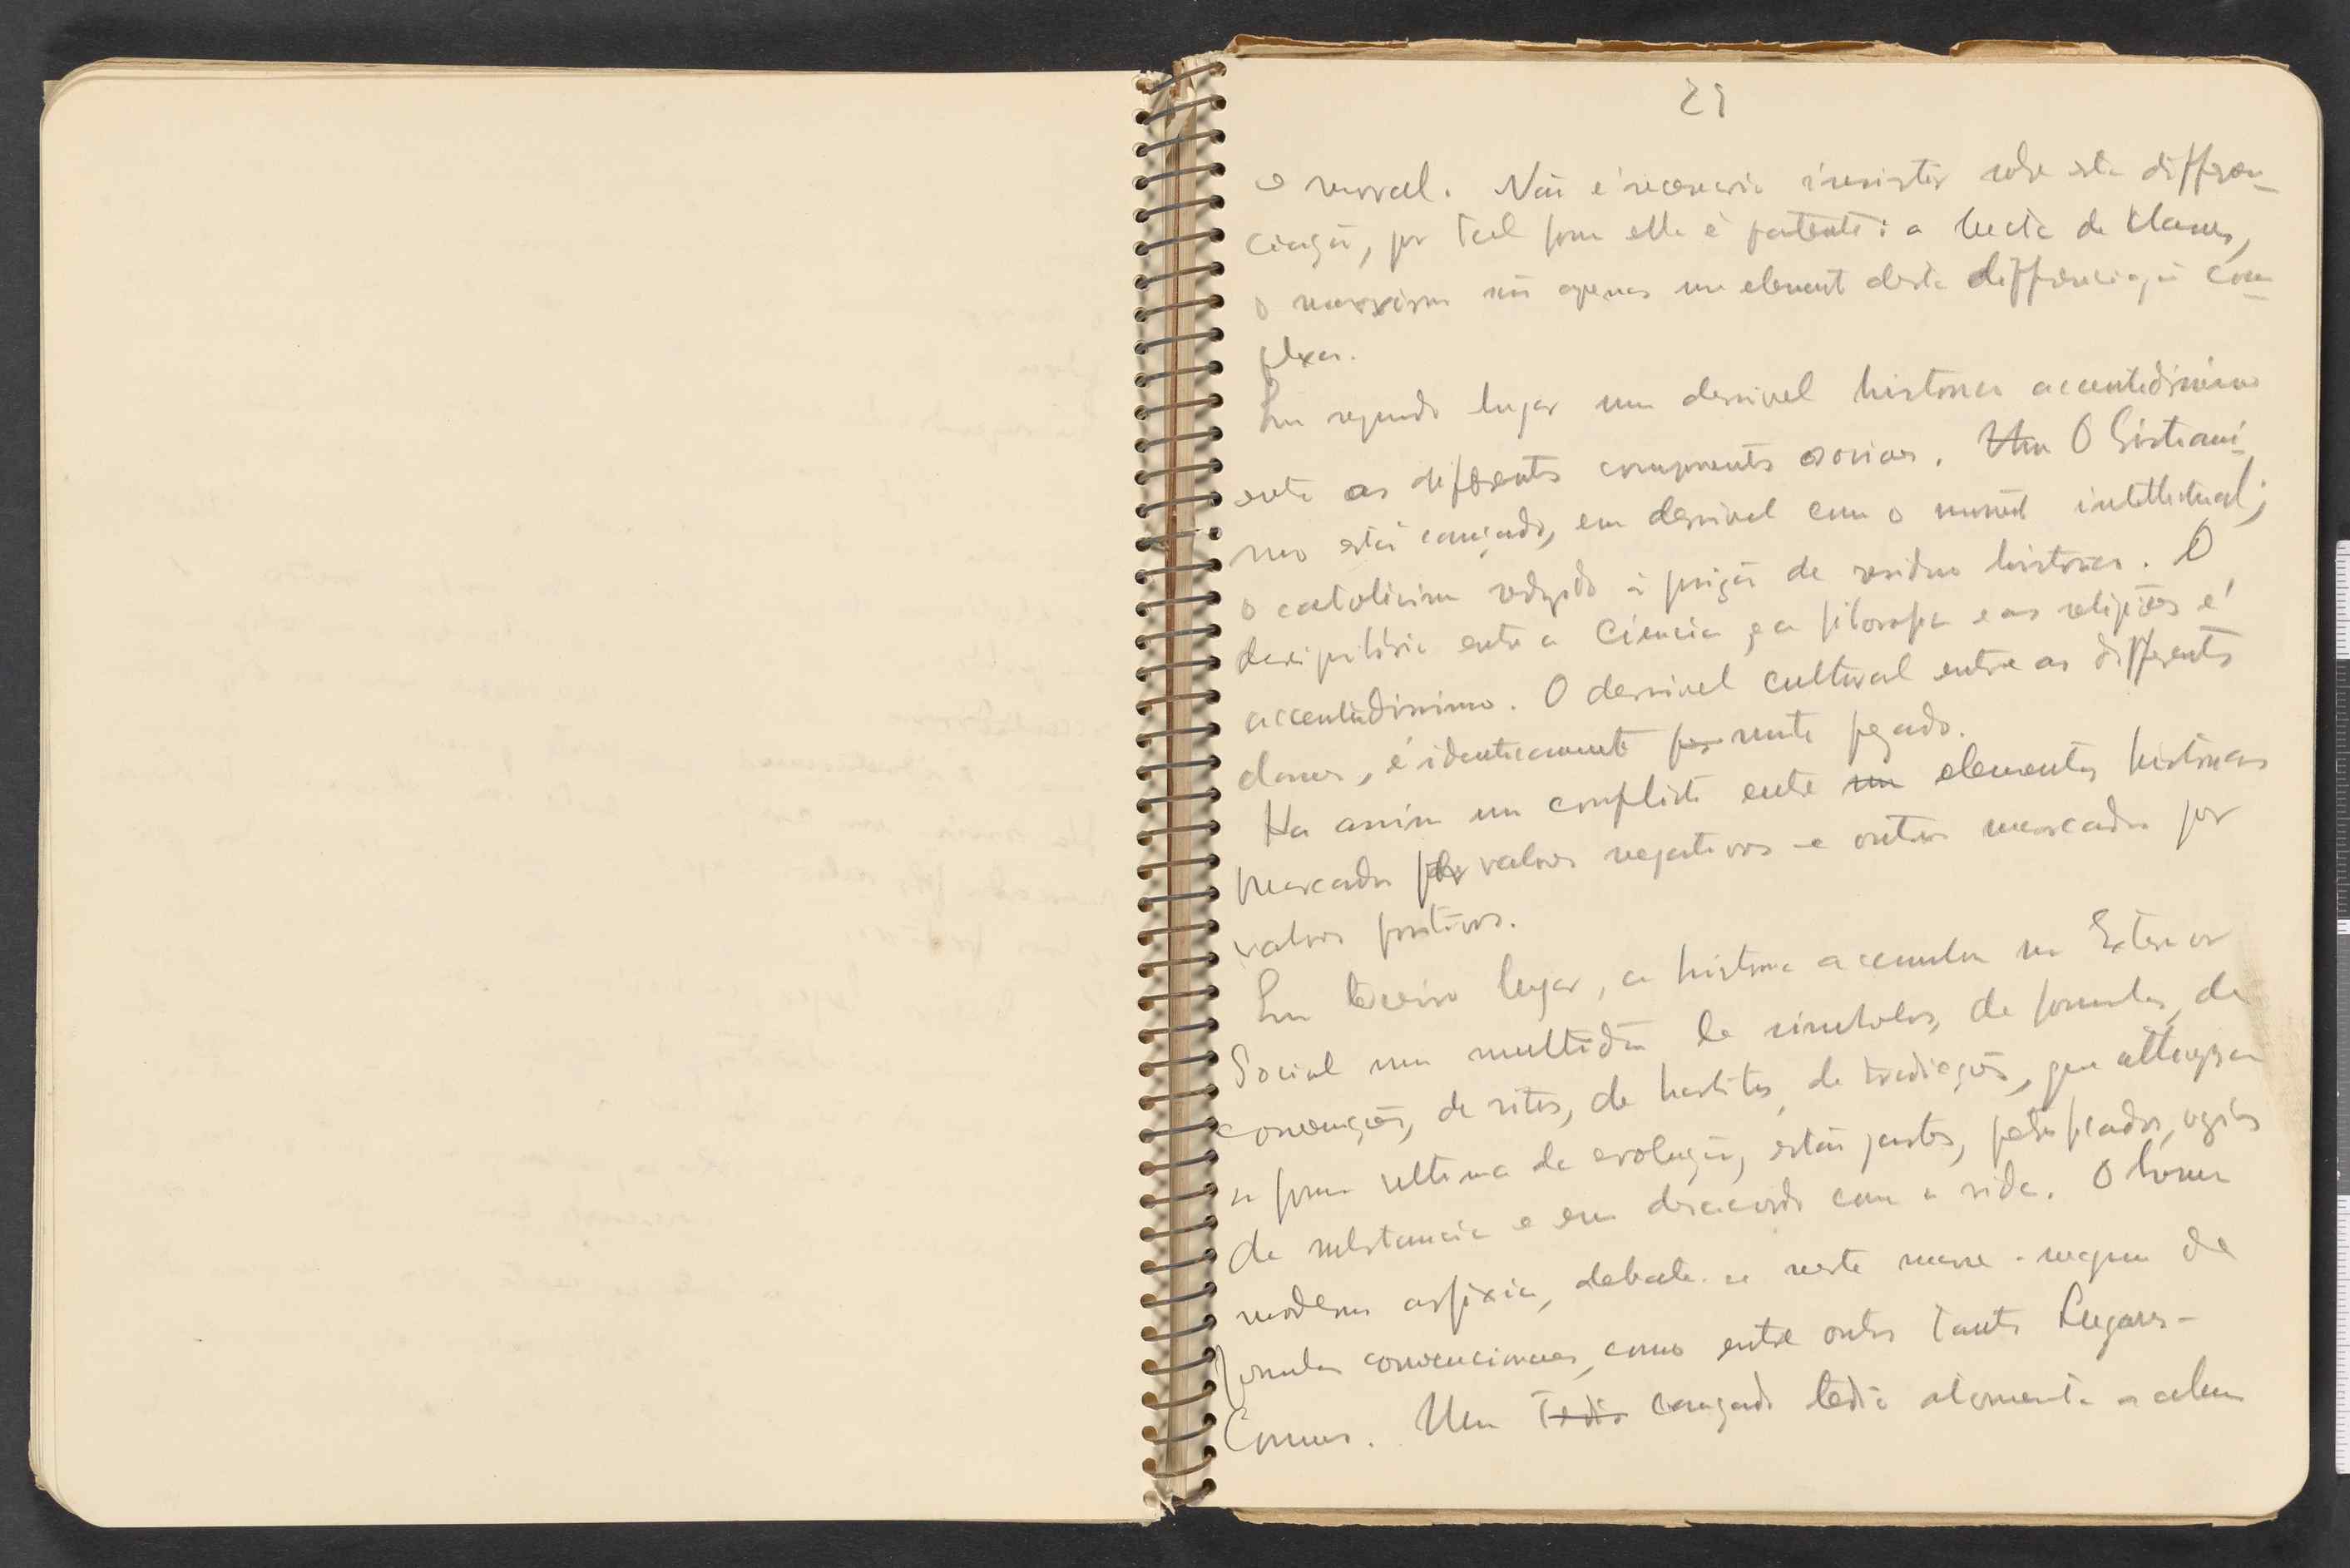 21
e moral. Não é necessario insistir sobre esta differen-
ciação, por tal forma ella é patente: a lucta de classes,
o marxismo são apenas um elemento desta differenciação com-
plexa.
Em segundo lugar um desnivel historico accentuadissimo
entre as differentes componentes sociaes. Um O Cristianis-
mo está cançado, em desnivel com o mundo intellectual;
o catolicismo reduzido á posição de residuo historico. O
desiquilibrio entre a Ciencia, a filosofia e as religiões é
accentuadissimo. O desnivel cultural entre as differentes
classes, é identicamente muito pezado.
Ha assim um conflicto entre um elementos historicos
marcados por valores negativos e outros marcados por
valores positivos.
Em terceiro lugar, a historia accumulou no Exterior
Social uma multidão de simbolos, de formulas, de
convenções, de ritos, de habitos, de tradicções, que attingiram
a forma ultima da evolução, estão gastos, petrificados, vazios
de substancia e em desacordo com a vida. O homem
moderno asfixia, debate-se neste mare-magnum de
formulas convencionaes, como entre outros tantos Lugares-
Comuns. Um tedio cançado tedio atormenta a alma